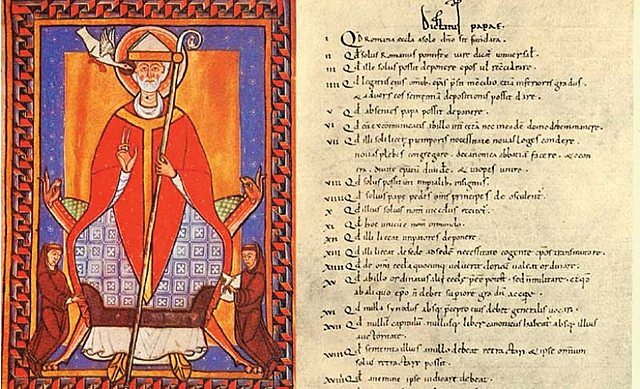 Dictatus papae.
I Qd Romana eccła a solo dño sit fundata.
II Qd solus Romanus pontifex iure dicat universł.
III Qd ille solus possit deponere epos ul reconciliare.
IIII Qd legatus eius omib. epis presit in concilio, etiā inferioris gradus.
& adversus eos sententiā depositionis possit dare.
V Qd absentes papa possit deponere.
VI Qd cū excommunicatis ab illo int cetā nec in eadē domo debem manere.
VII Qd illi soli licet p temporis necessitate novas leges condere.
novas plebes congregare. de canonica abbatiā facere. & econ
tra. divite epatū dividere. & inopes unire.
VIII Qd solus possit uti impialib. insigniis.
VIIII Qd solius papę pedes oms principes deosculent.
X Qd illius solius nom in ecclis recitet.
XI Qd hoc unicū ē nom in mundo.
XII Qd illi liceat impatores deponere.
XIII Qd illi liceat de sede ad sedē necessitate cogente epos transmutare.
XIIII Qd de omi eccla quocunq voluerit clericū valeat ordinare.
XV Qd ab illo ordinatus alii ecclę pęe potest. sed ñ militare. & qd
ab aliquo epo ñ debet supiorē gradū accipe.
XVI Qd nulla synodus absq pcepto eius debet generalis vocari.
XVII Qd nullū capitulū nullusq liber canonicus habeat absq illius
auctoritate.
XVIII Qd sententia illius a nullo debeat retractari. & ipse omium
solus retractare possit.
XVIIII Qd a nemine ipse iudicari debeat.